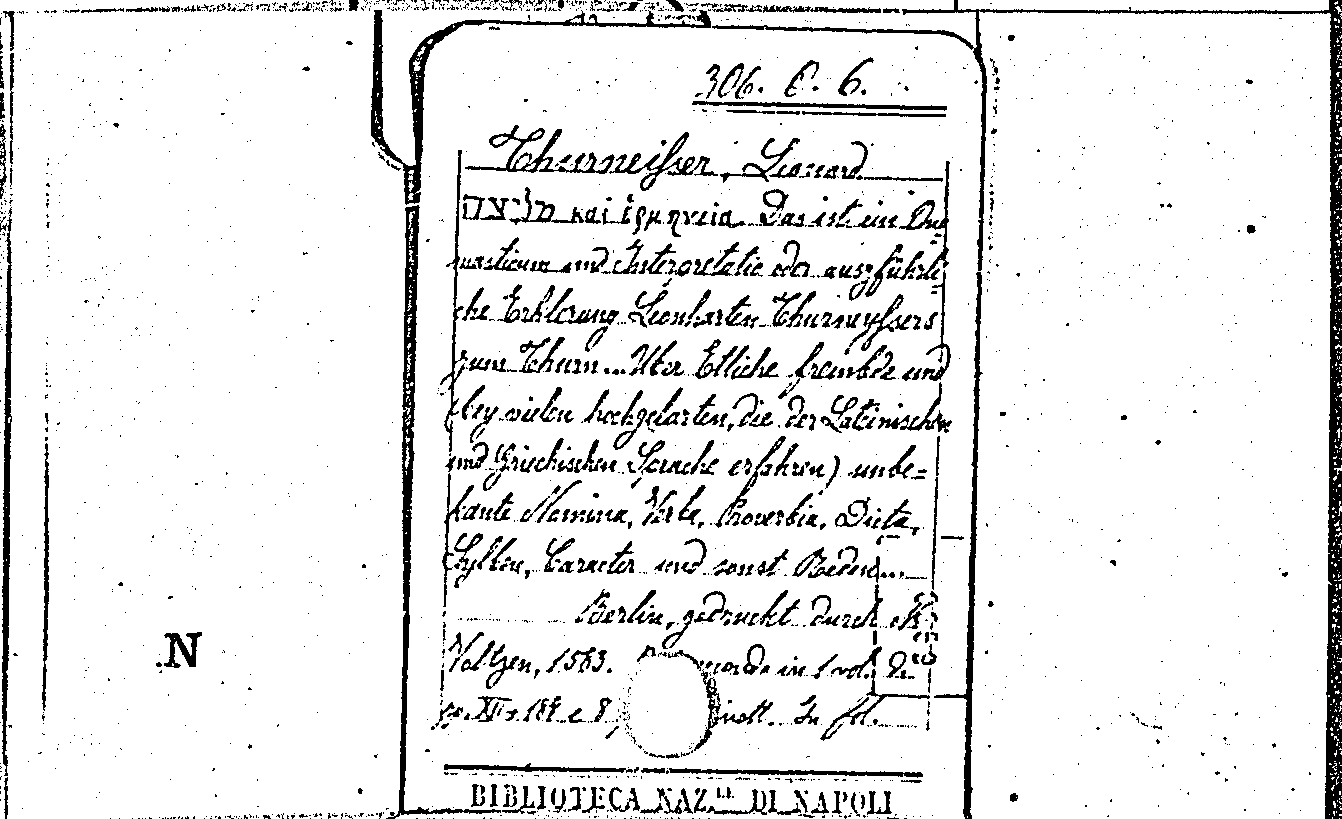 306. C. 6.
Thurneisser, Leonard
מליצה καὶ ἑρμηνεία. Das ist ein Ono
masticum und Interpretatio oder auszführli
che Erklerung Leonharten Thurneyssers
zum Thurn... Uber Etliche frembde und
(bey vielen hochgelarten, die der Lateinischen
und Griechischen Sprache erfahren) unbe-
kante Nomina, Verba, Proverbia, Dicta,
Syllben, Caracter und sonst Reden...
Berlin, gedruckt durch N.
Voltzen, 1583. in 1 vol. di
pp. XII, 188 e 8 In fol.
N
BIBLIOTECA NAZ.LE DI NAPOLI